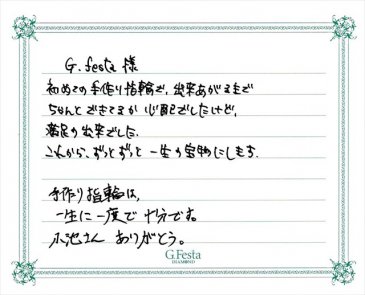 G.festa 様
初めての手作り指輪で、出来あがるまで
ちゃんとできてるか心配でしたけど、
満足の出来でした。
これから、ずっとずっと一生の宝物にします。
手作り指輪は、
一生に一度で十分です。
小池さん ありがとう。
G.Festa
DIAMOND